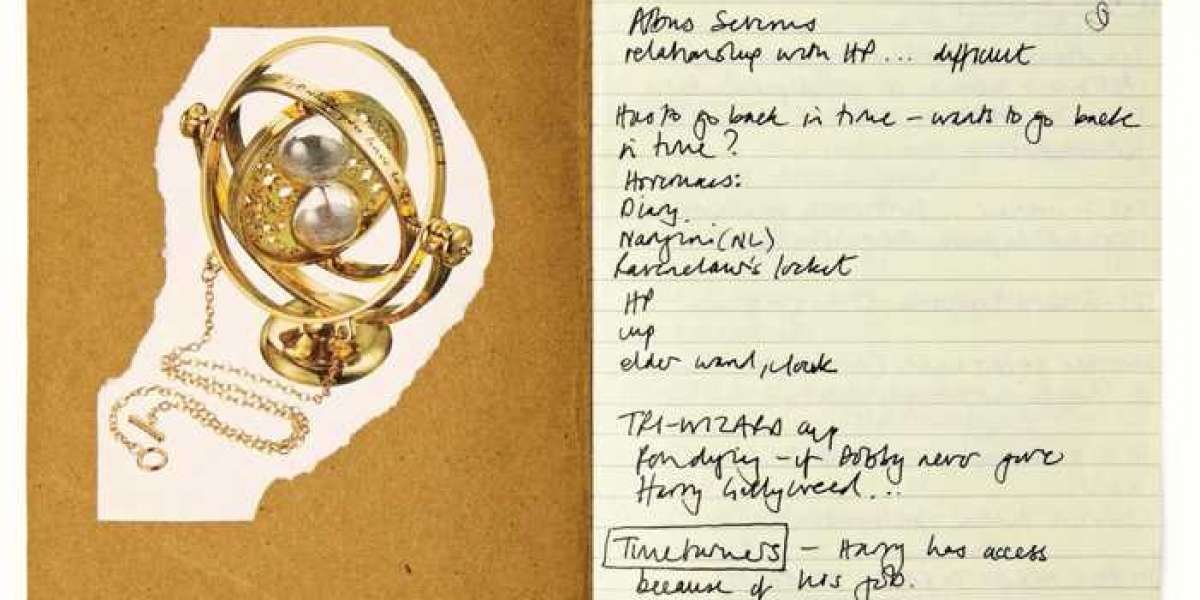 you have to
Albus Severus
relationship with HP... difficult
Has to go back in time – wants to go back
in time?
Horcruxes:
Diary.
Nangini (NL)
Ravenclaw's locket
HP
cup
elder wand, cloak
TRI-WIZARD cup
Ron dying – if Dobby never gave
Harry Gillyweed...
Timeturners – Harry has access
because of his job.